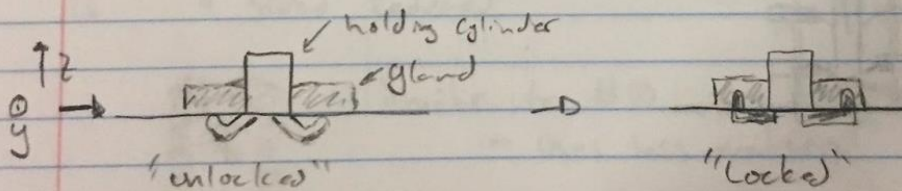 holding cylinder
z
gland
y
"unlocked"
"Locked"